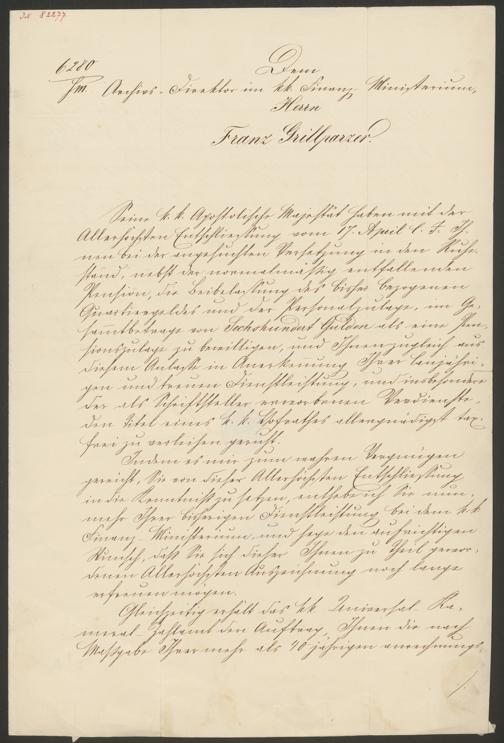 IN 82277
6280
Dem
FM. Archivs-Direktor im kk. Finanz-Ministerium,
Herrn
Franz Grillparzer.
Seine k. k. Apostolische Majestät haben mit der
Allerhöchsten Entschließung vom 17. April l. J. Ih-
nen bei der angesuchten Versetzung in den Ruhe-
stand, nebst der normalmäßig entfallenden
Pension, die Beibelassung des bisher bezogenen
Quartiergeldes und der Personalzulage, im Ge-
sammtbetrage von Sechshundert Gulden als eine Pen-
sionszulage zu bewilligen, und Ihnen zugleich aus
diesem Anlaße in Anerkennung Ihrer langjähri-
gen und treuen Dienstleistung, und insbesondere
der als Schriftsteller erworbenen Verdienste,
den Titel eines k. k. Hofrathes allergnädigst tax-
frei zu verleihen geruht.
Indem es mir zum wahren Vergnügen
gereicht, Sie von dieser Allerhöchsten Entschließung
in die Kenntniß zu setzen, enthebe ich Sie nun-
mehr Ihrer bisherigen Dienstleistung bei dem kk
Finanz-Ministerium, und hege den aufrichtigen
Wunsch, daß Sie sich dieser Ihnen zu Theil gewor-
denen Allerhöchsten Auszeichnung noch lange
erfreuen mögen.
Gleichzeitig erhält das kk. Universal-Ka-
meral-Zahlamt den Auftrag, Ihnen die nach
Maßgabe Ihrer mehr als 40 jährigen anrechnungs-